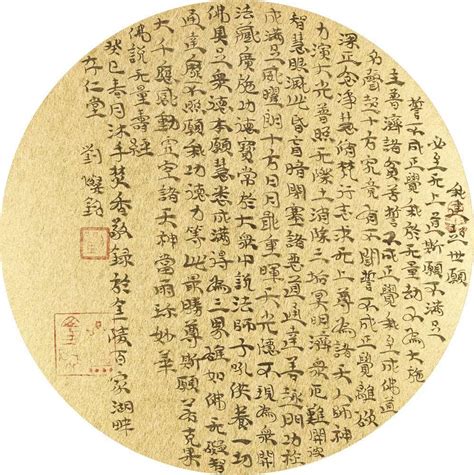 我建超世願
必至无上道斯願不滿足
誓不成正覺我於无量劫不為大施
主普濟諸貧苦誓不成正覺我至成佛道
名聲超十方究竟有不聞誓不成正覺離欲
深正念淨慧修梵行志求无上尊為諸天人師神
力演大光普照无際土消除三垢冥明濟眾厄難開彼
智慧眼滅此昏盲暗閉塞諸惡道通達善趣門功祚
成滿足威曜朗十方日月戢重暉天光隱不現為眾開
法藏廣施功德寶常於大眾中說法師子吼供養一切
佛具足眾德本願慧悉成滿得為三界雄如佛无礙智
通達靡不照願我功德力等此最勝尊斯願若克果
大千應感動虛空諸天神當雨珍妙華
佛說无量壽經
癸巳春月沐手焚香敬録於金陵百家湖畔
存仁堂 劉燦銘